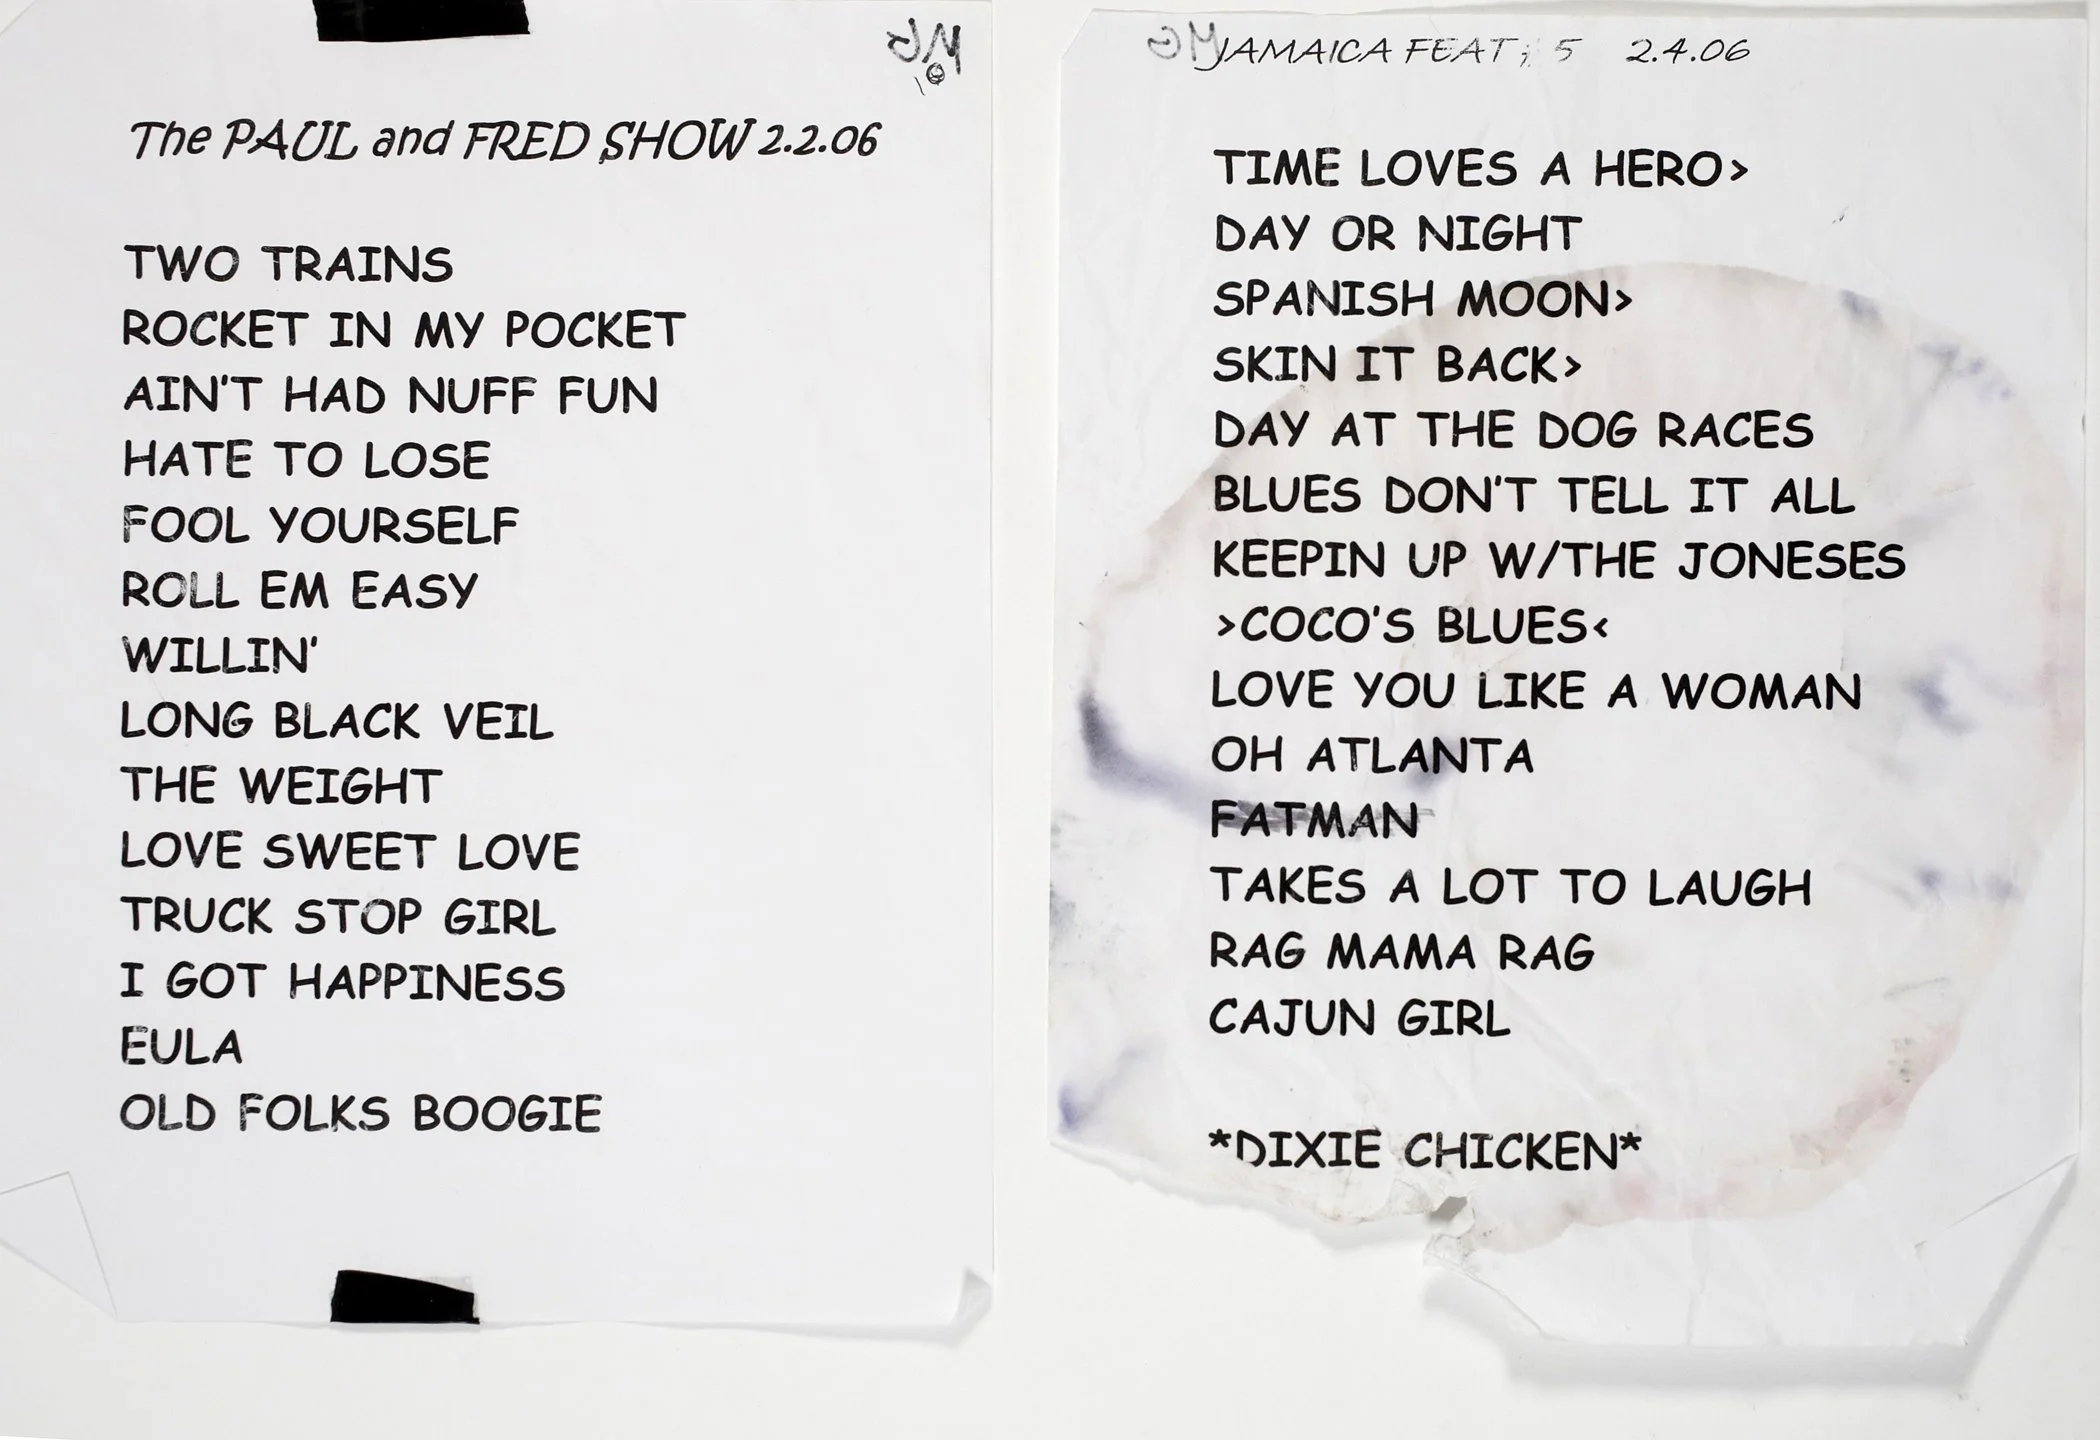 The PAUL and FRED SHOW 2.2.06
TWO TRAINS
ROCKET IN MY POCKET
AIN'T HAD NUFF FUN
HATE TO LOSE
FOOL YOURSELF
ROLL EM EASY
WILLIN'
LONG BLACK VEIL
THE WEIGHT
LOVE SWEET LOVE
TRUCK STOP GIRL
I GOT HAPPINESS
EULA
OLD FOLKS BOOGIE
JAMAICA FEAT 5 2.4.06
TIME LOVES A HERO>
DAY OR NIGHT
SPANISH MOON>
SKIN IT BACK>
DAY AT THE DOG RACES
BLUES DON'T TELL IT ALL
KEEPIN UP W/THE JONESES
>COCO'S BLUES<
LOVE YOU LIKE A WOMAN
OH ATLANTA
FATMAN
TAKES A LOT TO LAUGH
RAG MAMA RAG
CAJUN GIRL
*DIXIE CHICKEN*